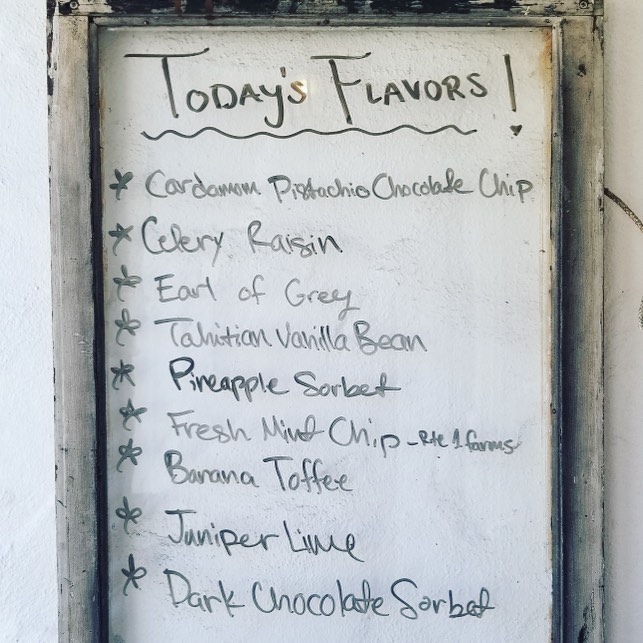 TODAY'S FLAVORS!
* Cardamom Pistachio Chocolate Chip
* Celery Raisin
* Earl of Grey
* Tahitian Vanilla Bean
* Pineapple Sorbet
* Fresh Mint Chip - Rte 1 farms
* Banana Toffee
* Juniper Lime
* Dark Chocolate Sorbet